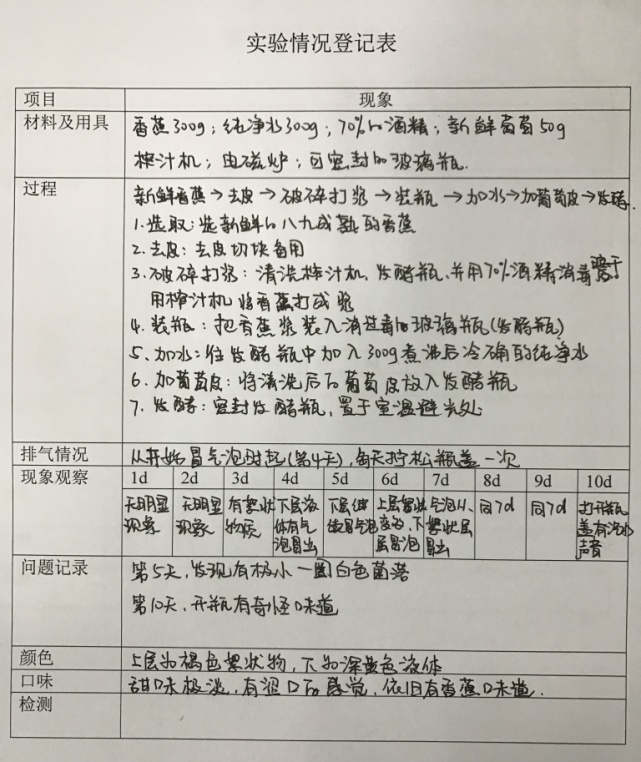 实验情况登记表
项目 现象
材料及用具 香蕉300g；纯净水300g；70%的酒精；新鲜葡萄50g
榨汁机；电磁炉；可密封的玻璃瓶.
过程 新鲜香蕉→去皮→破碎打浆→装瓶→加水→加葡萄皮→发酵.
1.选取：选新鲜的八九成熟的香蕉
2.去皮：去皮切块备用
3.破碎打浆：清洗榨汁机、发酵瓶、并用70%酒精消毒
用榨汁机将香蕉打成浆
4.装瓶：把香蕉浆装入消过毒的玻璃瓶(发酵瓶)
5.加水：往发酵瓶中加入300g煮沸后冷确的纯净水
6.加葡萄皮：将清洗后的葡萄皮放入发酵瓶
7.发酵：密封发酵瓶，置于室温避光处
排气情况 从开始冒气泡时起(第4天)，每天拧松瓶盖一次
现象观察 1d 2d 3d 4d 5d 6d 7d 8d 9d 10d
无明显 无明显 有絮状 下层液 下层继 上层絮状 气泡从 同7d 同7d 打开瓶
现象 现象 物质 体有气 续冒气泡 变多，下 絮状层 盖有汽水
泡冒出 层冒泡 冒出 声音
问题记录 第5天，发现有极小一圈白色菌落
第10天，开瓶有奇怪味道
颜色 上层为褐色絮状物，下为深黄色液体
口味 甜味极淡，有涩口的感觉，依旧有香蕉味道.
检测